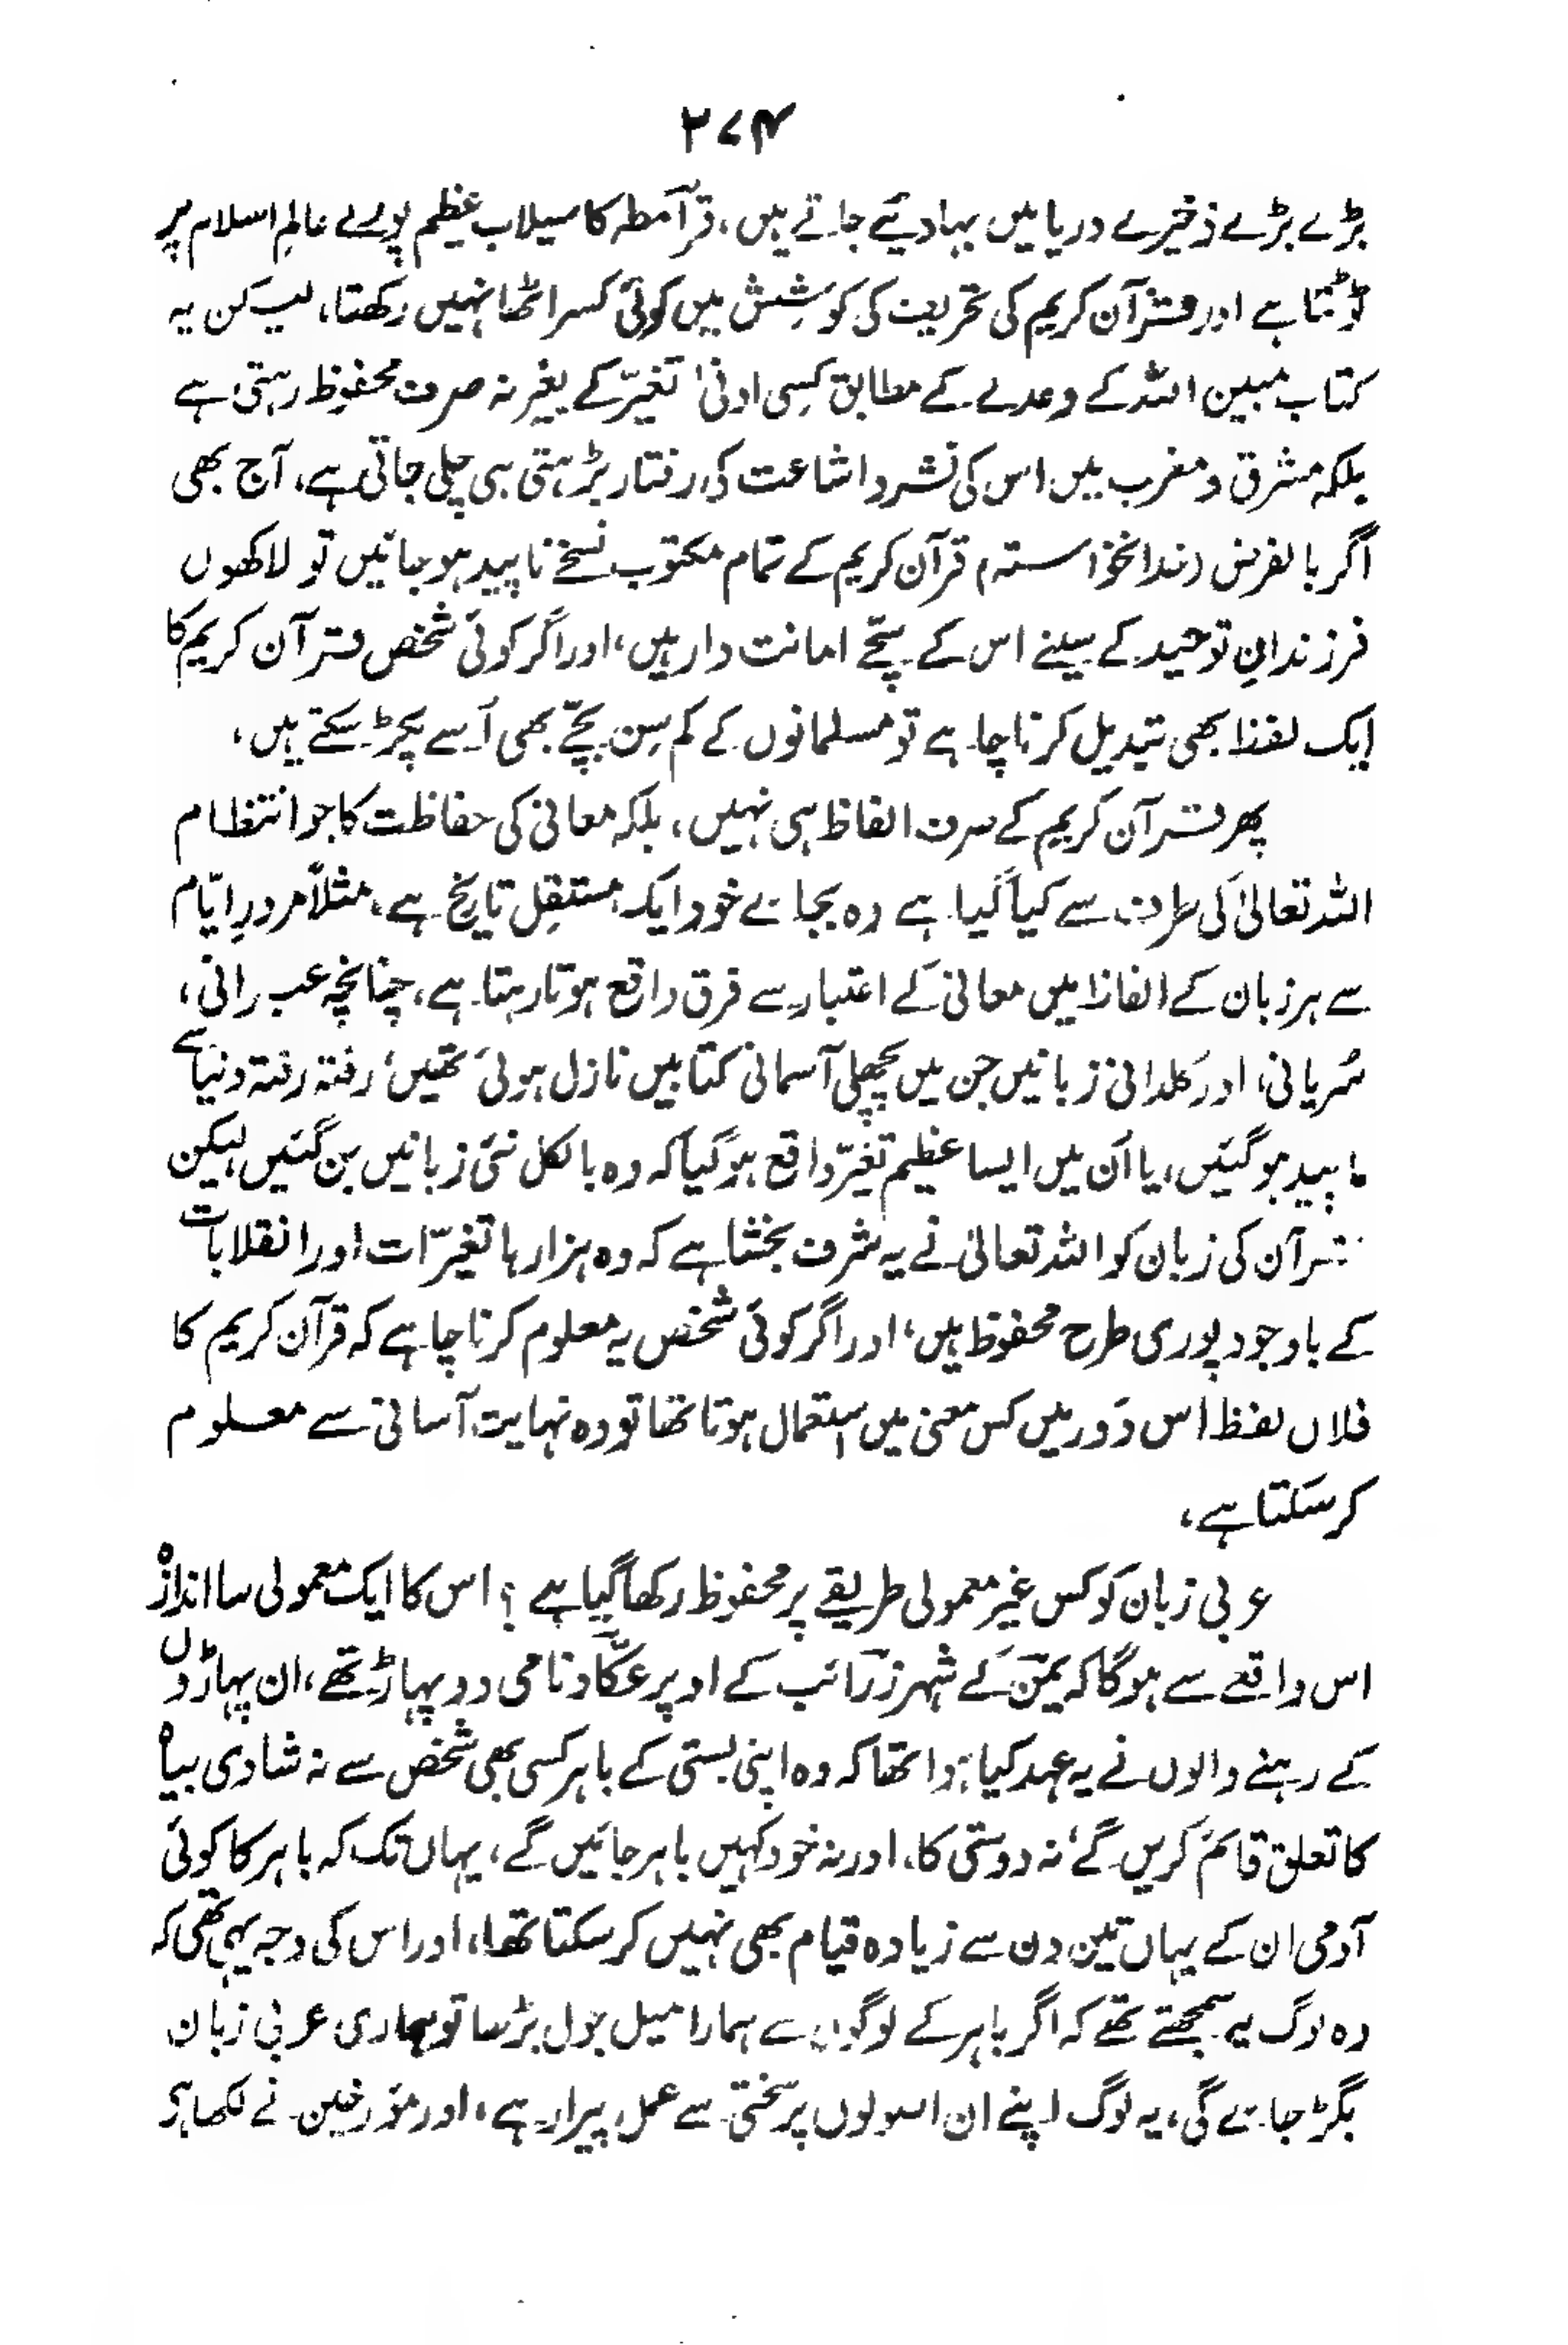 ۲۷۴
بڑے بڑے ذخیرے دریا میں بہا دیئے جاتے ہیں، قرآمطہ کا سیلابِ عظیم پورے عالمِ اسلام پر
ٹوٹتا ہے اور قرآن کریم کی تحریف کی کوشِش میں کوئی کسر اٹھا نہیں رکھتا، لیکن یہ
کتاب مبین اللہ کے وعدے کے مطابق کِسی ادنیٰ تغیّر کے بغیر نہ صرف محفوظ رہتی ہے
بلکہ مشرق و مغرب میں اس کی نشر و اشاعت کی رفتار بڑہتی ہی چلی جاتی ہے، آج بھی
اگر بالفرض (خدانخواستہ) قرآن کریم کے تمام مکتوب نسخے ناپید ہو جائیں تو لاکھوں
فرزندانِ توحید کے سینے اس کے سچّے امانت دار ہیں، اور اگر کوئی شخص قرآن کریم کا
ایک لفظ بھی تبدیل کرنا چاہے تو مسلمانوں کے کم سِن بچّے بھی اُسے پکڑ سکتے ہیں،
پھر قرآن کریم کے صرف الفاظ ہی نہیں، بلکہ معانی کی حفاظت کا جو انتظام
اللہ تعالیٰ کی طرف سے کیا گیا ہے وہ بجائے خود ایک مستقِل تاریخ ہے، مثلاً مرورِ ایّام
سے ہر زبان کے الفاظ میں معانی کے اعتبار سے فرق واقع ہوتا رہتا ہے، چنانچہ عبرانی،
سُریانی، اور کلدانی زبانیں جن میں پچھلی آسمانی کتابیں نازل ہوئی تھیں، رفتہ رفتہ دنیا سے
ناپید ہو گئیں، یا اُن میں ایسا عظیم تغیّر واقع ہو گیا کہ وہ بالکل نئی زبانیں بن گئیں، لیکن
قرآن کی زبان کو اللہ تعالیٰ نے یہ شرف بخشا ہے کہ وہ ہزارہا تغیّرات اور انقلابات
کے باوجود پوری طرح محفوظ ہیں، اور اگر کوئی شخص یہ معلوم کرنا چاہے کہ قرآن کریم کا
فلاں لفظ اس دَور میں کس معنی میں استعمال ہوتا تھا تو وہ نہایت آسانی سے معلوم
کر سکتا ہے،
عربی زبان کو کس غیر معمولی طریقے پر محفوظ رکھا گیا ہے؟ اس کا ایک معمولی سا اندازہ
اس واقعے سے ہوگا کہ یمن کے شہر زرائب کے اوپر عکّاد نامی دو پہاڑ تھے، ان پہاڑوں
کے رہنے والوں نے یہ عہد کیا ہوا تھا کہ وہ اپنی بستی کے باہر کسی بھی شخص سے نہ شادی بیاہ
کا تعلق قائم کریں گے، نہ دوستی کا، اور نہ خود کہیں باہر جائیں گے، یہاں تک کہ باہر کا کوئی
آدمی ان کے یہاں تین دن سے زیادہ قیام بھی نہیں کر سکتا تھا، اور اس کی وجہ یہی تھی کہ
وہ لوگ یہ سمجھتے تھے کہ اگر باہر کے لوگوں سے ہمارا میل جول بڑھا تو ہماری عربی زبان
بگڑ جائے گی، یہ لوگ اپنے ان اصولوں پر سختی سے عمل پیرا رہے، اور مؤرخین نے لکھا ہے